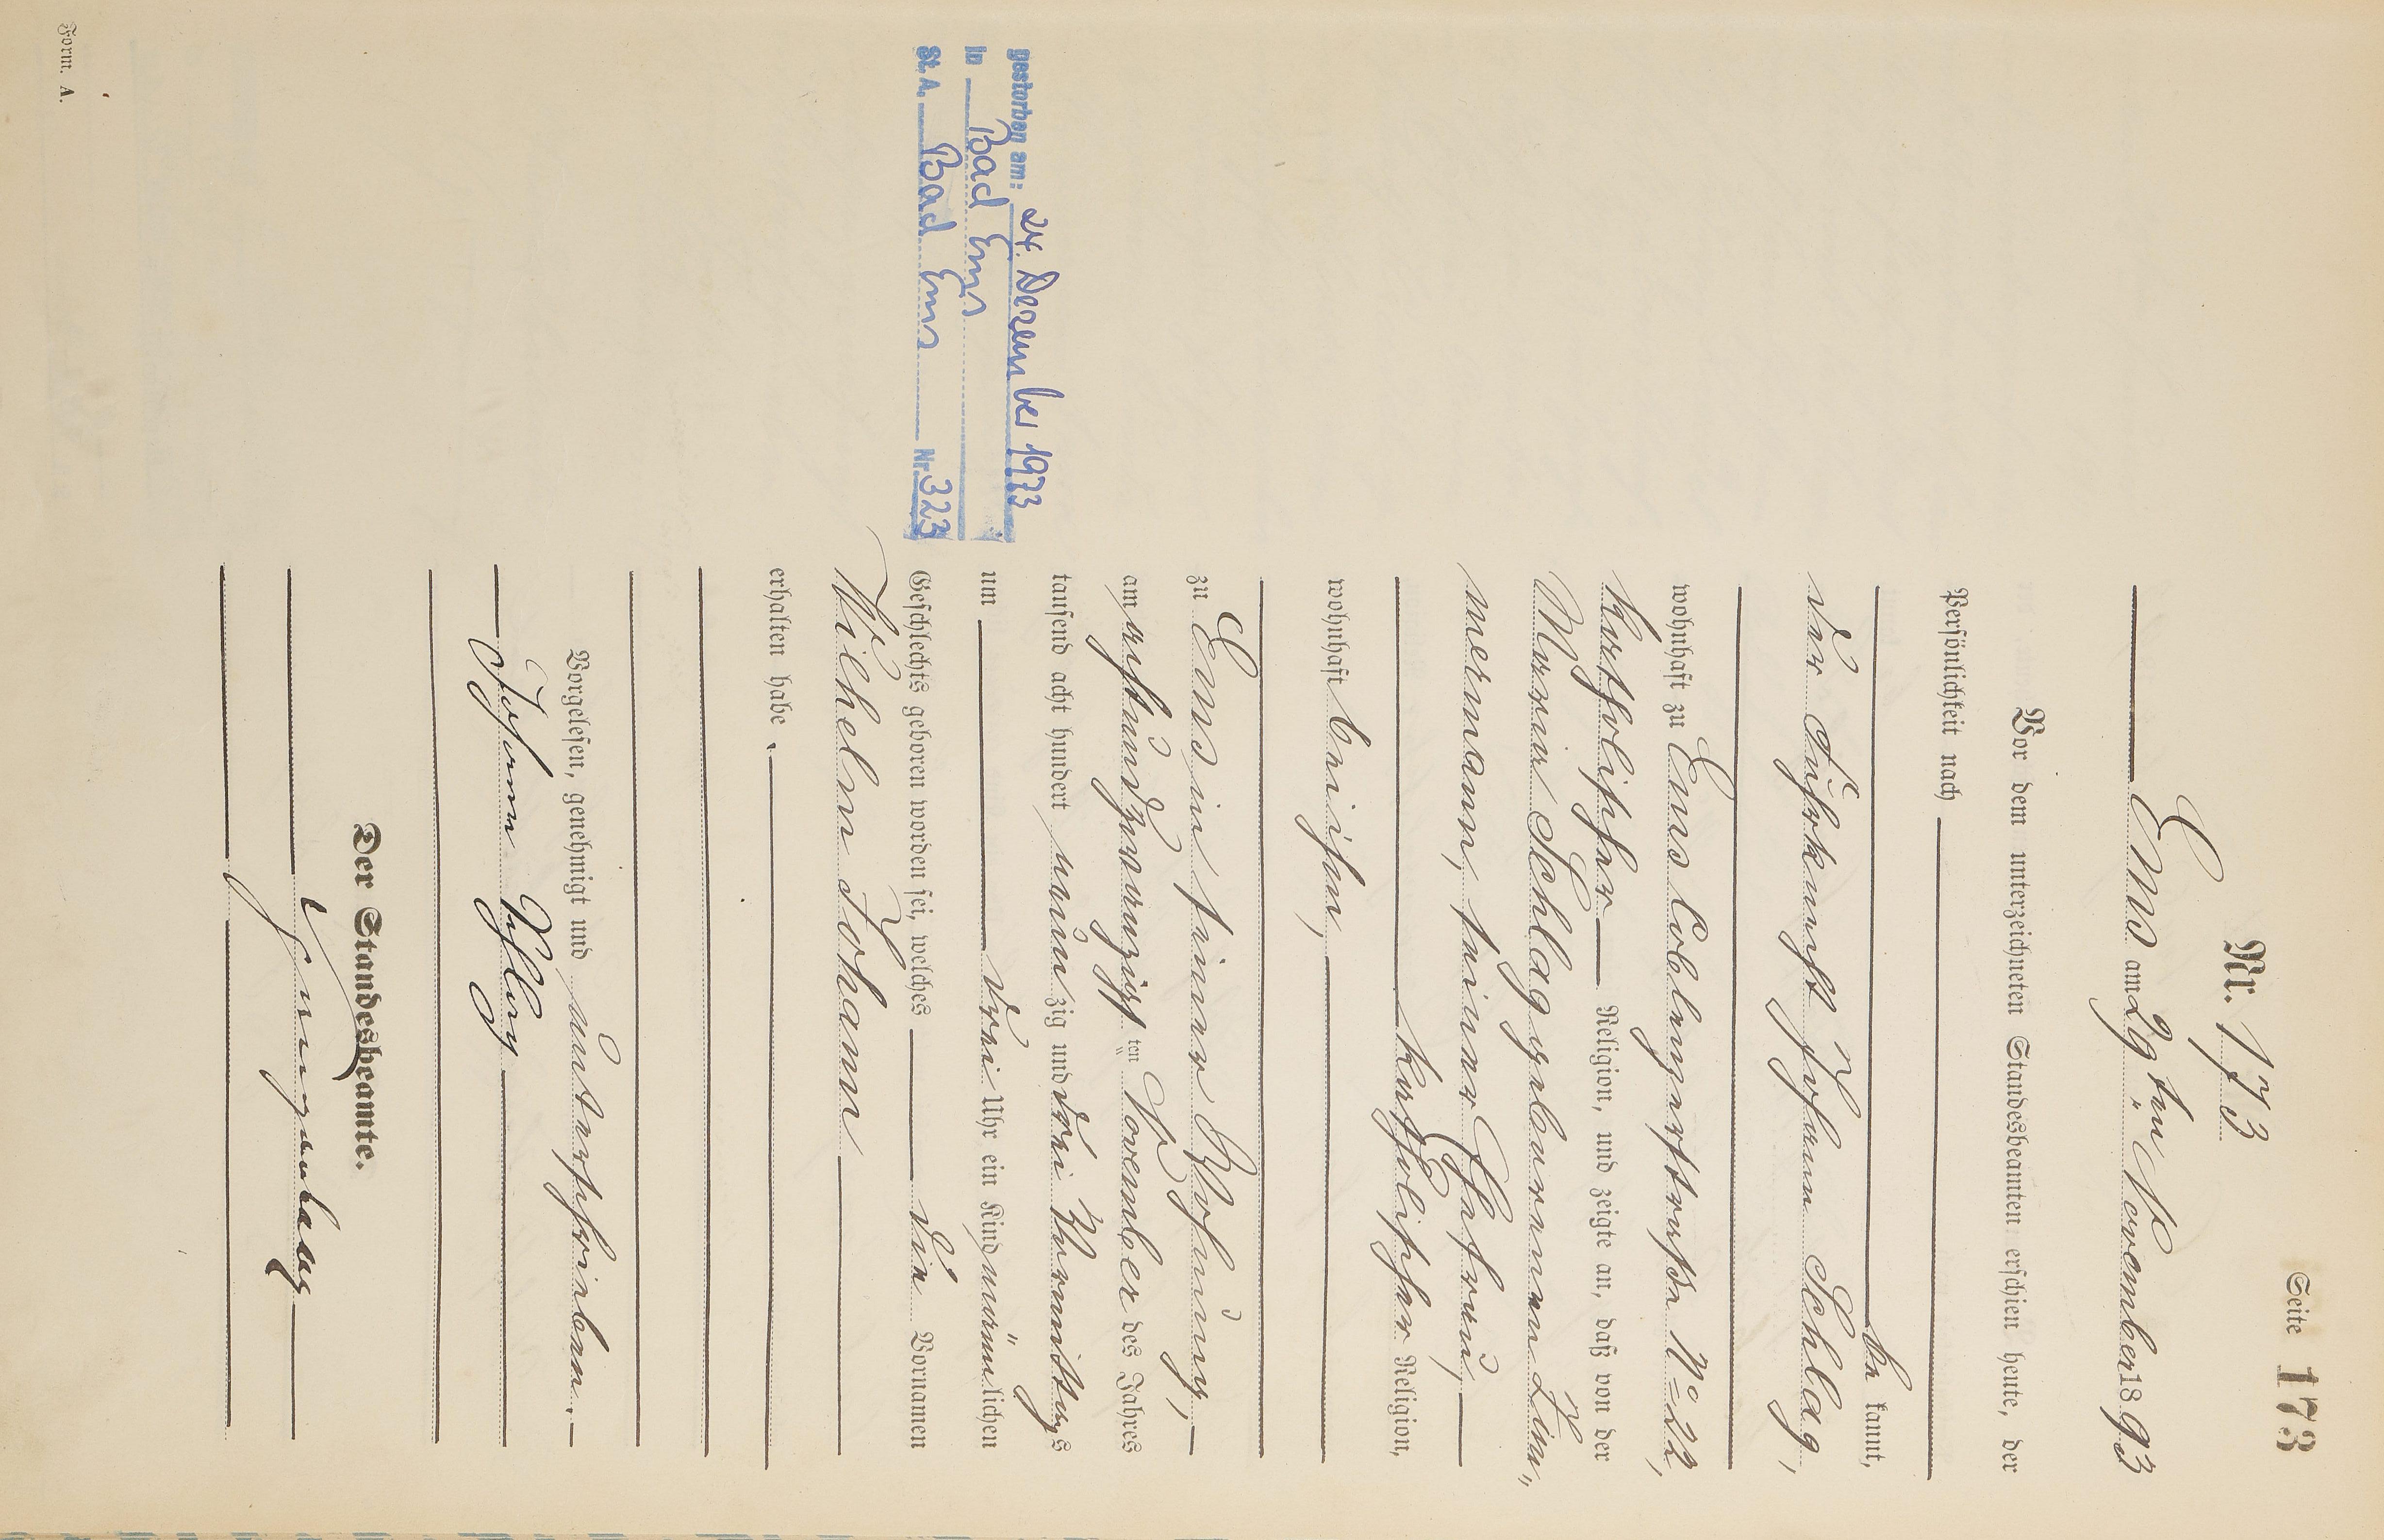 Seite 173
Nr. 173
Ems am 29ten November 1893
Vor dem unterzeichneten Standesbeamten erschien heute, der
Persönlichkeit nach
be kannt,
der Johann Schlag,
wohnhaft zu Ems Coblenzerstraße No 22,
katholischer Religion, und zeigte an, daß von der
Maria Schlag geborenen Zim„
mermann, seiner Ehefrau,
katholischer Religion,
wohnhaft bei ihm,
zu Ems in seiner Wohnung,
am achtundzwanzigsten November des Jahres
tausend acht hundert neunzig und drei Vormittags
um drei Uhr ein Kind männlichen
Geschlechts geboren worden sei, welches die Vornamen
Wilhelm Johann
erhalten habe.
Vorgelesen, genehmigt und unterschrieben.
Johann Schlag
Der Standesbeamte.
gestorben am: 24. Dezember 1973
in Bad Ems
St. A. Bad Ems Nr. 323
Form. A.